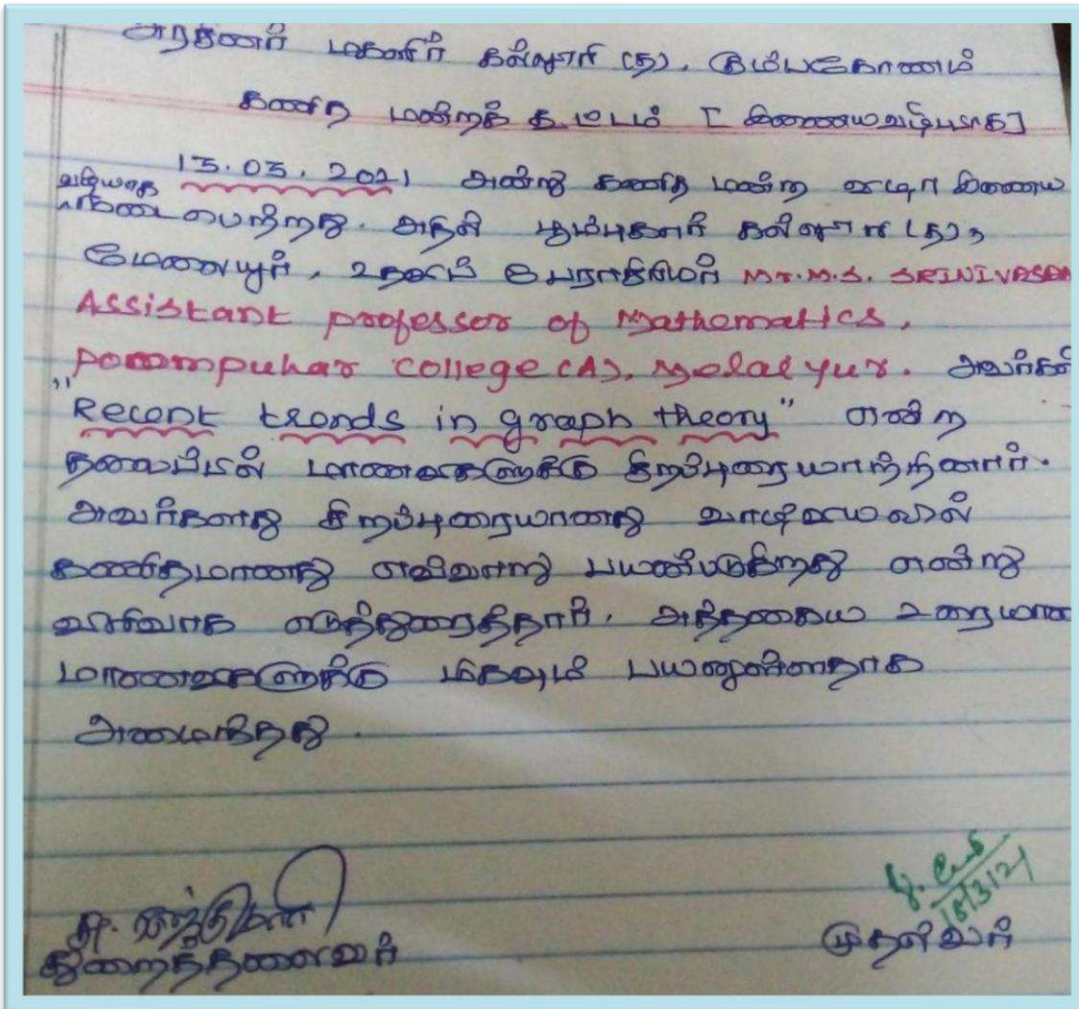 அரசினர் மகளிர் கல்லூரி (த), கும்பகோணம்
கணித மன்றக் கூட்டம் [இணையவழியாக]
15.03.2021 அன்று கணித மன்ற விழா இணைய
வழியாக நடைபெற்றது. அதில் பூம்புகார் கல்லூரி (த),
மேலையூர், உதவிப் பேராசிரியர் Mr. M.S. SRINIVASAN
Assistant professor of Mathematics,
poompuhar college (A), Melaiyur. அவர்கள்
"Recent trends in graph theory" என்ற
தலைப்பில் மாணவிகளுக்கு சிறப்புரையாற்றினார்.
அவர்களது சிறப்புரையானது வாழ்வியலில்
கணிதமானது எவ்வாறு பயன்படுகிறது என்று
விரிவாக எடுத்துரைத்தார். அத்தகைய உரையான
மாணவிகளுக்கு மிகவும் பயனுள்ளதாக
அமைந்தது.
18/3/21
துறைத்தலைவர்
முதல்வர்